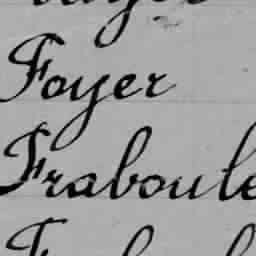 Foyer
Fraboule